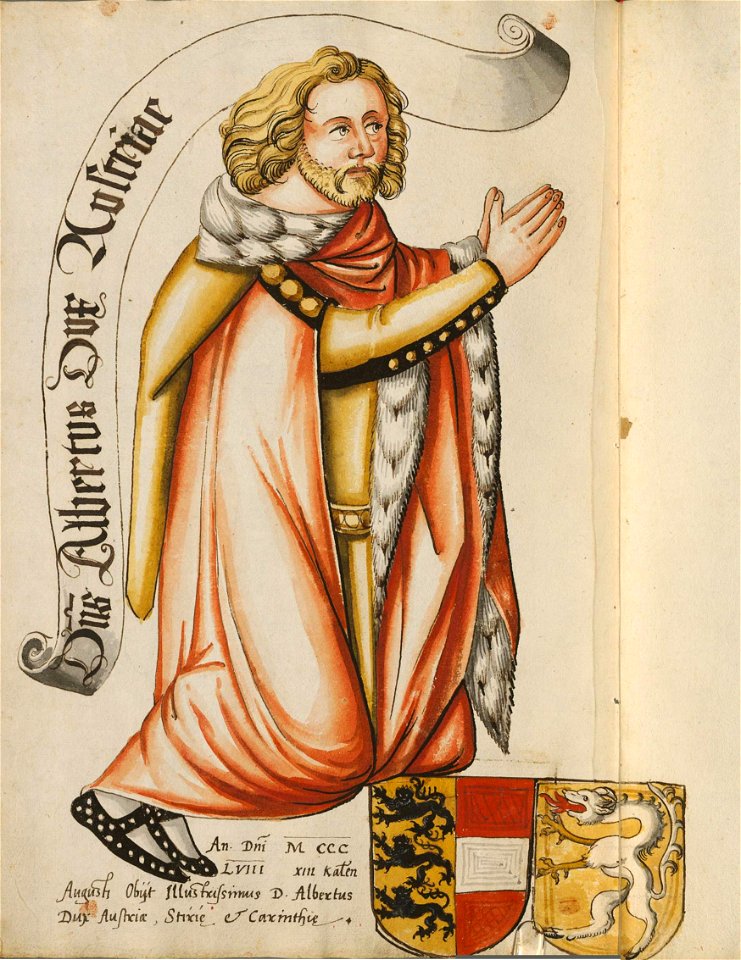 Dn̄s Albertus Dux Austriae
An. Dn̄i M CCC
LVIII XIII Kalēn
Augusti Obijt Illustrissimus D. Albertus
Dux Austriæ, Stirie & Carinthie.